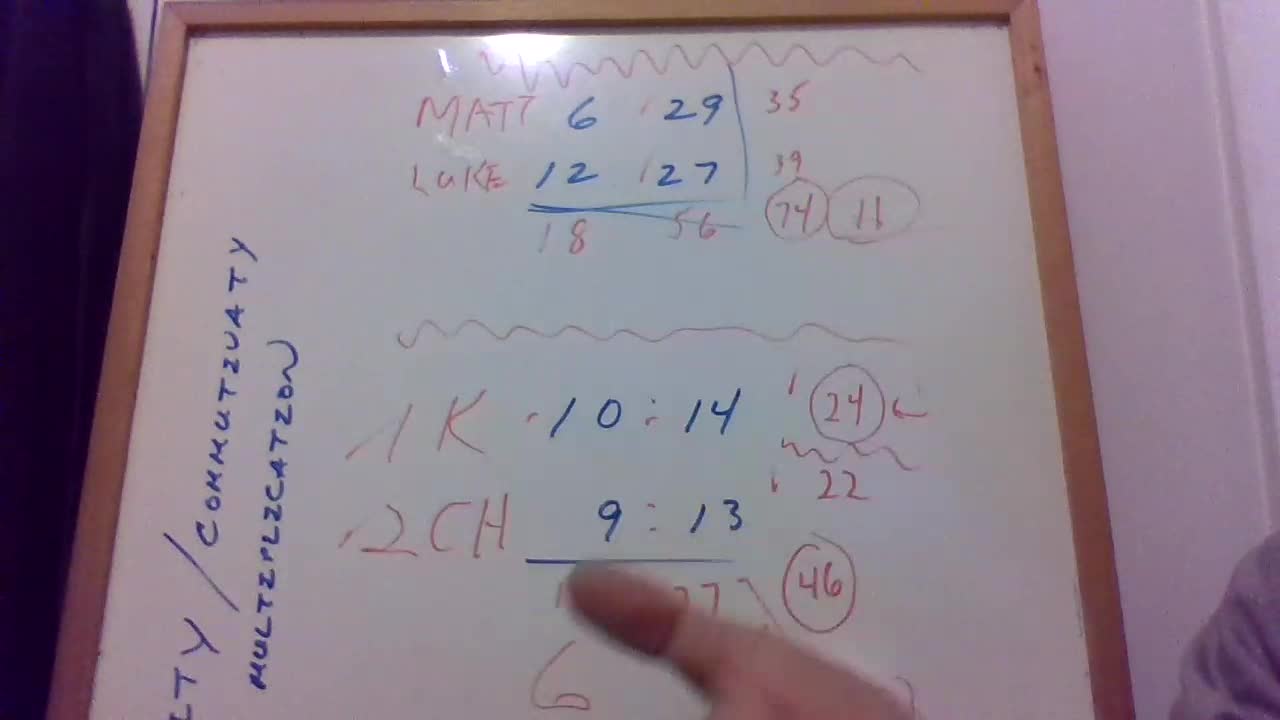 MATT 6 29 35
LUKE 12 127 39
18 56 74 11
1K 10:14 24
22
2CH 9:13
27 46
6
LTY / COMMUTZVATY
MULTZPLZCATZON